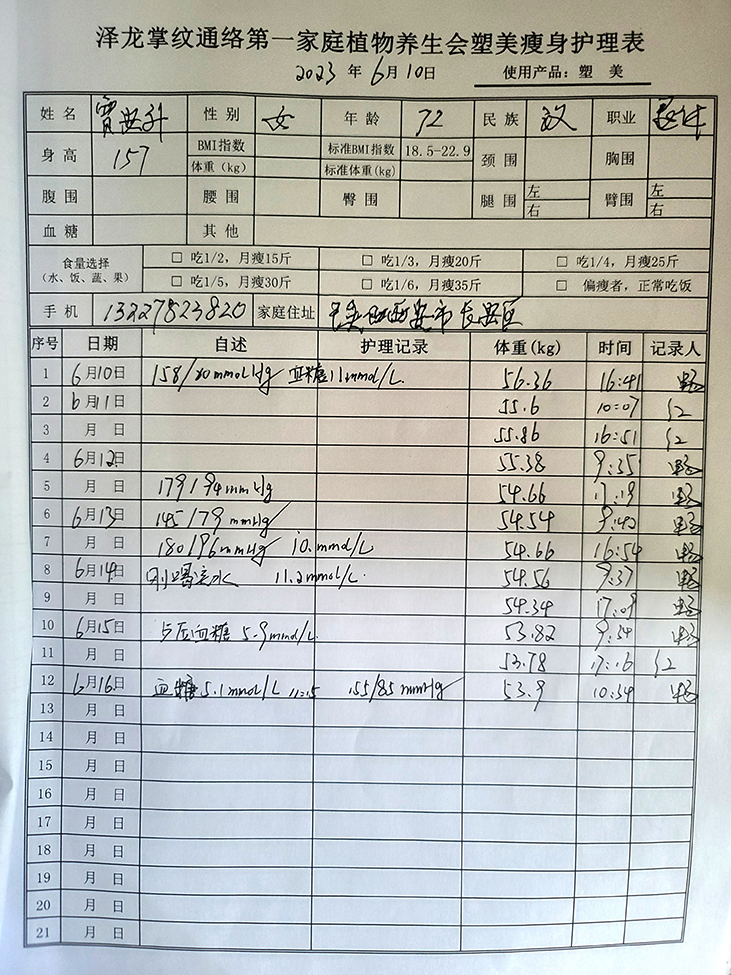 泽龙掌纹通络第一家庭植物养生会塑美瘦身护理表
2023 年 6月 10日 使用产品：塑 美
姓 名 性 别 女 年 龄 72 民 族 汉 职业 退休
身 高 157 BMI指数 标准BMI指数 18.5-22.9 颈 围 胸围
体重（kg） 标准体重(kg)
腹 围 腰 围 臀 围 腿 围 左 臂围 左
右 右
血 糖 其 他
食量选择 □ 吃1/2，月瘦15斤 □ 吃1/3，月瘦20斤 □ 吃1/4，月瘦25斤
（水、饭、蔬、果） □ 吃1/5，月瘦30斤 □ 吃1/6，月瘦35斤 □ 偏瘦者，正常吃饭
手 机 13227823820 家庭住址 西安市长安区
序号 日期 自述 护理记录 体重(kg) 时间 记录人
1 6月10日 158/80mmolHg 血糖11mmol/L. 56.36 16:41
2 6月11日 55.6 10:07
3 月 日 55.86 16:51
4 6月12日 55.38 9:35
5 月 日 179/94mmHg 54.66 17:19
6 6月13日 145/79mmHg 54.54 9:40
7 月 日 180/96mmHg 10.mmol/L 54.66 16:54
8 6月14日 刚喝完水 11.2mmol/L. 54.56 9:37
9 月 日 54.34 17:09
10 6月15日 血糖 5.9mmol/L. 53.82 9:54
11 月 日 53.78 17:16
12 6月16日 血糖5.1mmol/L 155/85mmHg 53.9 10:34
13 月 日
14 月 日
15 月 日
16 月 日
17 月 日
18 月 日
19 月 日
20 月 日
21 月 日